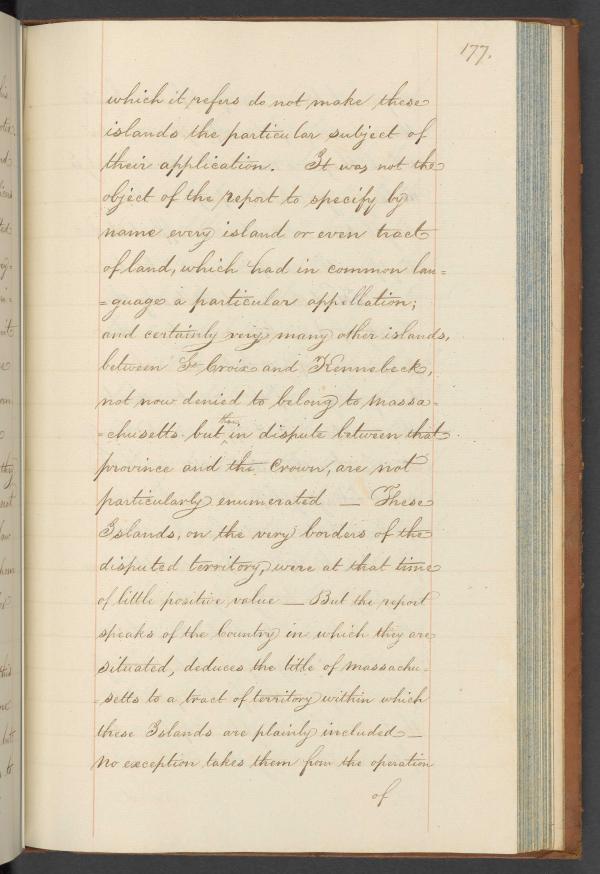 177.
which it refers do not make these
islands the particular subject of
their application. It was not the
object of the report to specify by
name every island or even tract
of land, which had in common lan=
=guage a particular appellation;
and certainly very many other islands,
between St Croix and Kennebeck,
not now denied to belong to Massa=
=chusetts but then in dispute between that
province and the Crown, are not
particularly enumerated — These
Islands, on the very borders of the
disputed territory, were at that time
of little positive value — But the report
speaks of the Country in which they are
situated, deduces the title of Massachu=
=setts to a tract of territory within which
these Islands are plainly included —
No exception takes them from the operation
of